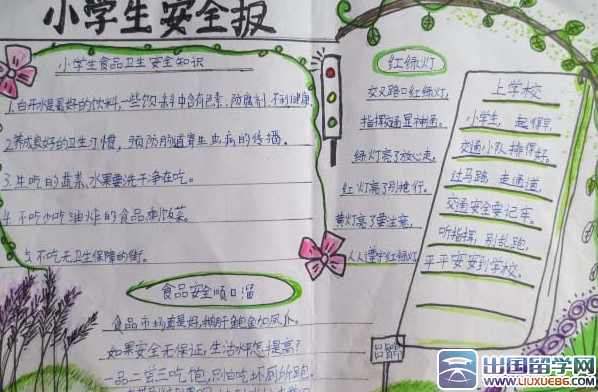 小学生安全报
小学生食品卫生安全知识
1.白开水是最好的饮料,一些饮料中含有色素,防腐剂,不利健康.
2.养成良好的卫生习惯,预防肠道寄生虫病的传播.
3.生吃的蔬菜,水果要洗干净在吃.
4.不吃油炸的食品剩饭菜.
5.不吃无卫生保障的街.
食品安全顺口溜
食品市场真是好,鲍鱼加凤爪.
如果安全无保证,生活水平怎提高?
一品二尝三吃饱,只怕吃坏厕所跑.
红绿灯
交叉路口红绿灯,
指挥交通显神通.
绿灯亮了放心走,
红灯亮了别抢行.
黄灯亮了要注意,
人人遵守红绿灯
上学校
小学生,起得早,
交通小队排得好.
过马路,走通道,
交通安全要记牢.
听指挥,别乱跑,
平平安安到学校.
出国留学网
www.liuxue86.com